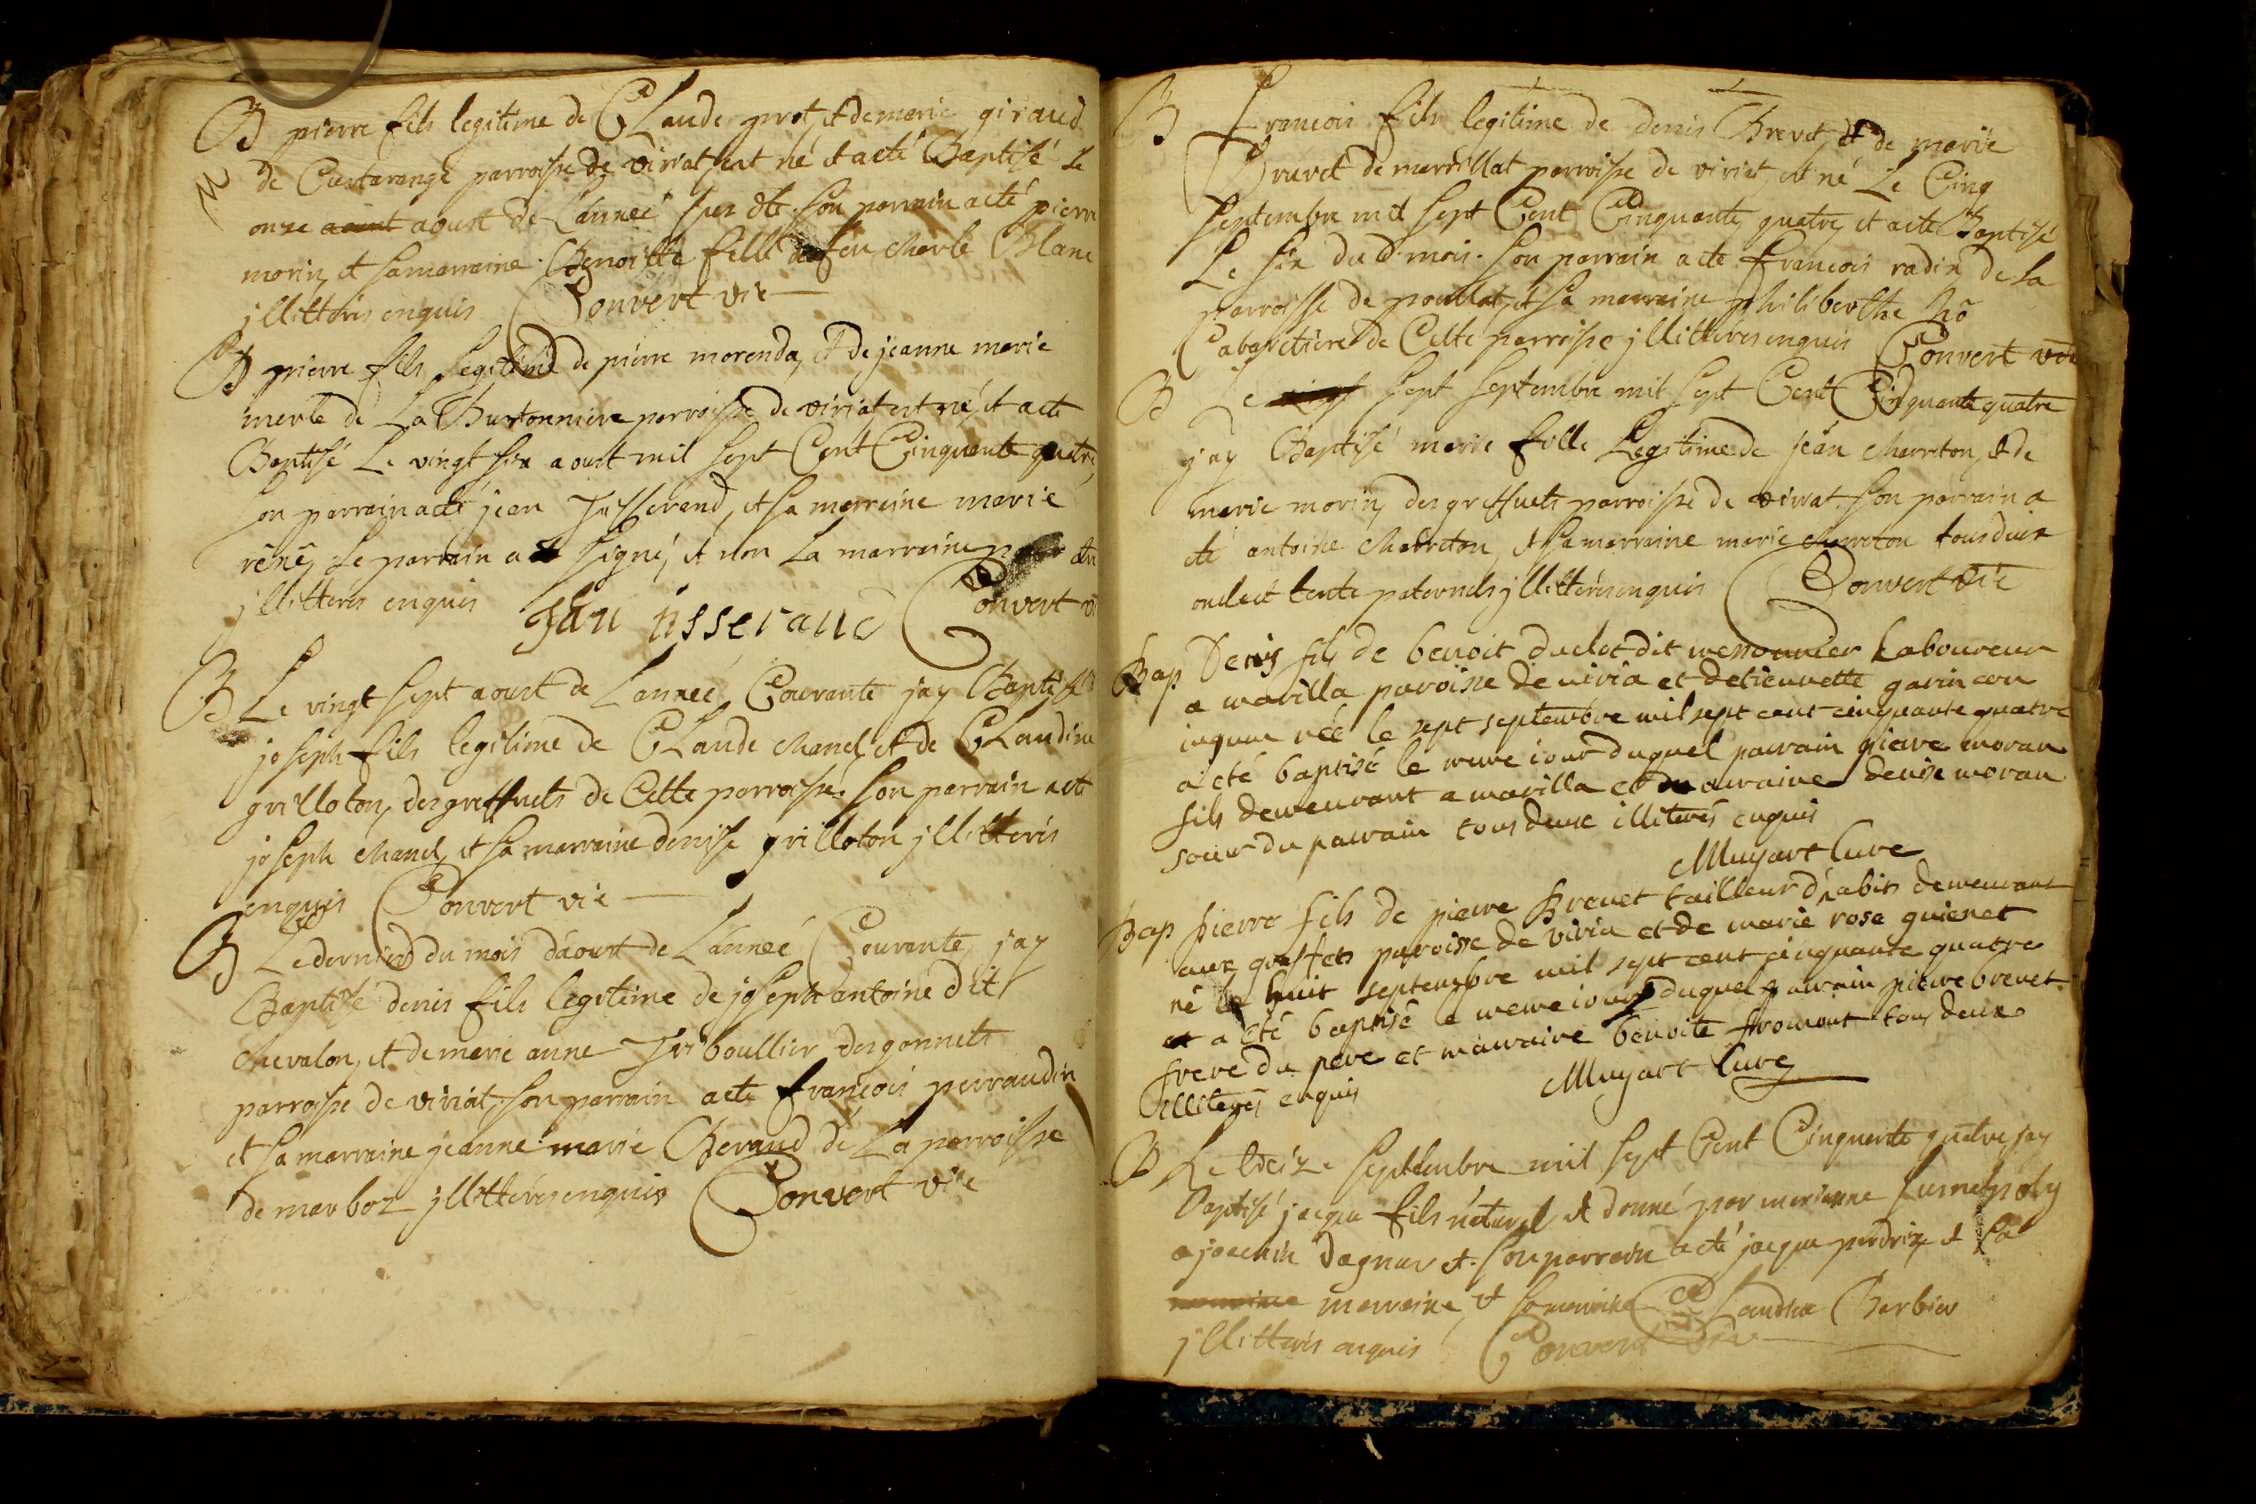 B pierre fils legitime de Claude prot, et de marie giraud
de Curtarange parroisse de viriat est né et a eté Baptisé le
onze aoust de L'année sus dte. son parrain a eté pierre
morin, et sa marraine Benoitte fille de feu charle Blanc
jllitterés enquis Convert vic
B pierre fils legitime de pierre morenda, et de jeanne marie
merle de La Burtonniere parroisse de viriat est né, et a eté
Baptisé Le vingt six aoust mil sept Cent Cinquante quatre
son parrain a eté jean Tisserand, et sa marraine marie
réné, Le parrain a signé, et non La marraine
jllitterés enquis jean tisserand Convert vic
B Le vingt sept aoust de L'année Courante j'ay Baptisé
joseph fils legitime de Claude chanel, et de Claudine
grilloton, des greffuets de Cette parroisse. son parrain a eté
joseph chanel, et sa marraine denise grilloton jllitterés
enquis Convert vic
B Le dernier du mois d'aoust de L'année Courante, j'ay
Baptisé denis fils legitime de joseph antoine dit
chevalon, et de marie anne Triboullier des gonnets
parroisse de viriat, son parrain a eté françois perraudin
et sa marraine jeanne marie Beraud de La parroisse
de marboz jllitterés enquis Convert vic
B francois fils legitime de denis Brevet, et de marie
Bruvet de marillat parroisse de viriat, est né Le Cinq
septembre mil sept Cent Cinquante quatre, et a eté Baptisé
Le six du d. mois. son parrain a eté francois radix de La
parroisse de poulat, et sa marraine philiberthe
Cabaretiere de Cette parroisse jllitterés enquis Convert vic
B Le vingt sept septembre mil sept Cent Cinquante quatre
j'ay Baptisé marie fille Legitime de jean charreton, et de
marie morin, des greffuets parroisse de viriat. son parrain a
eté antoine charreton, et sa marraine marie charreton tous deux
oncle et tente paternels jllitterés enquis Convert vic
Bap Denis fils de benoit duclot dit messonnier Laboureur
a marilla paroisse de viria et detiennette garin con
jugaux néé le sept septembre mil sept cent cinquante quatre
a eté baptisé le meme iour duquel parrain pierre moran
fils demeurant a marilla et maraine denise moran
soeur du parrain tous deux illiterés enquis
Muyart Cure
Bap pierre fils de pierre Brevet tailleur d'abits demeurant
aux greffets paroisse de viria et de marie rose guienet
né le huit septembre mil sept cent cinquante quatre
et a eté baptisé le meme iour duquel parrain pierre brevet
frere du pere et maraine benoite fromont tous deux
illiterés enquis Muyart Cure
B Le treize septembre mil sept Cent Cinquante quatre j'ay
Baptisé jacque fils naturel, et donné par marianne
a joachin dagnar et. son parrain a eté jacque perdrix et sa
marraine marraine, et sa marraine Claudine Barbier
jllitterés enquis Convert vic